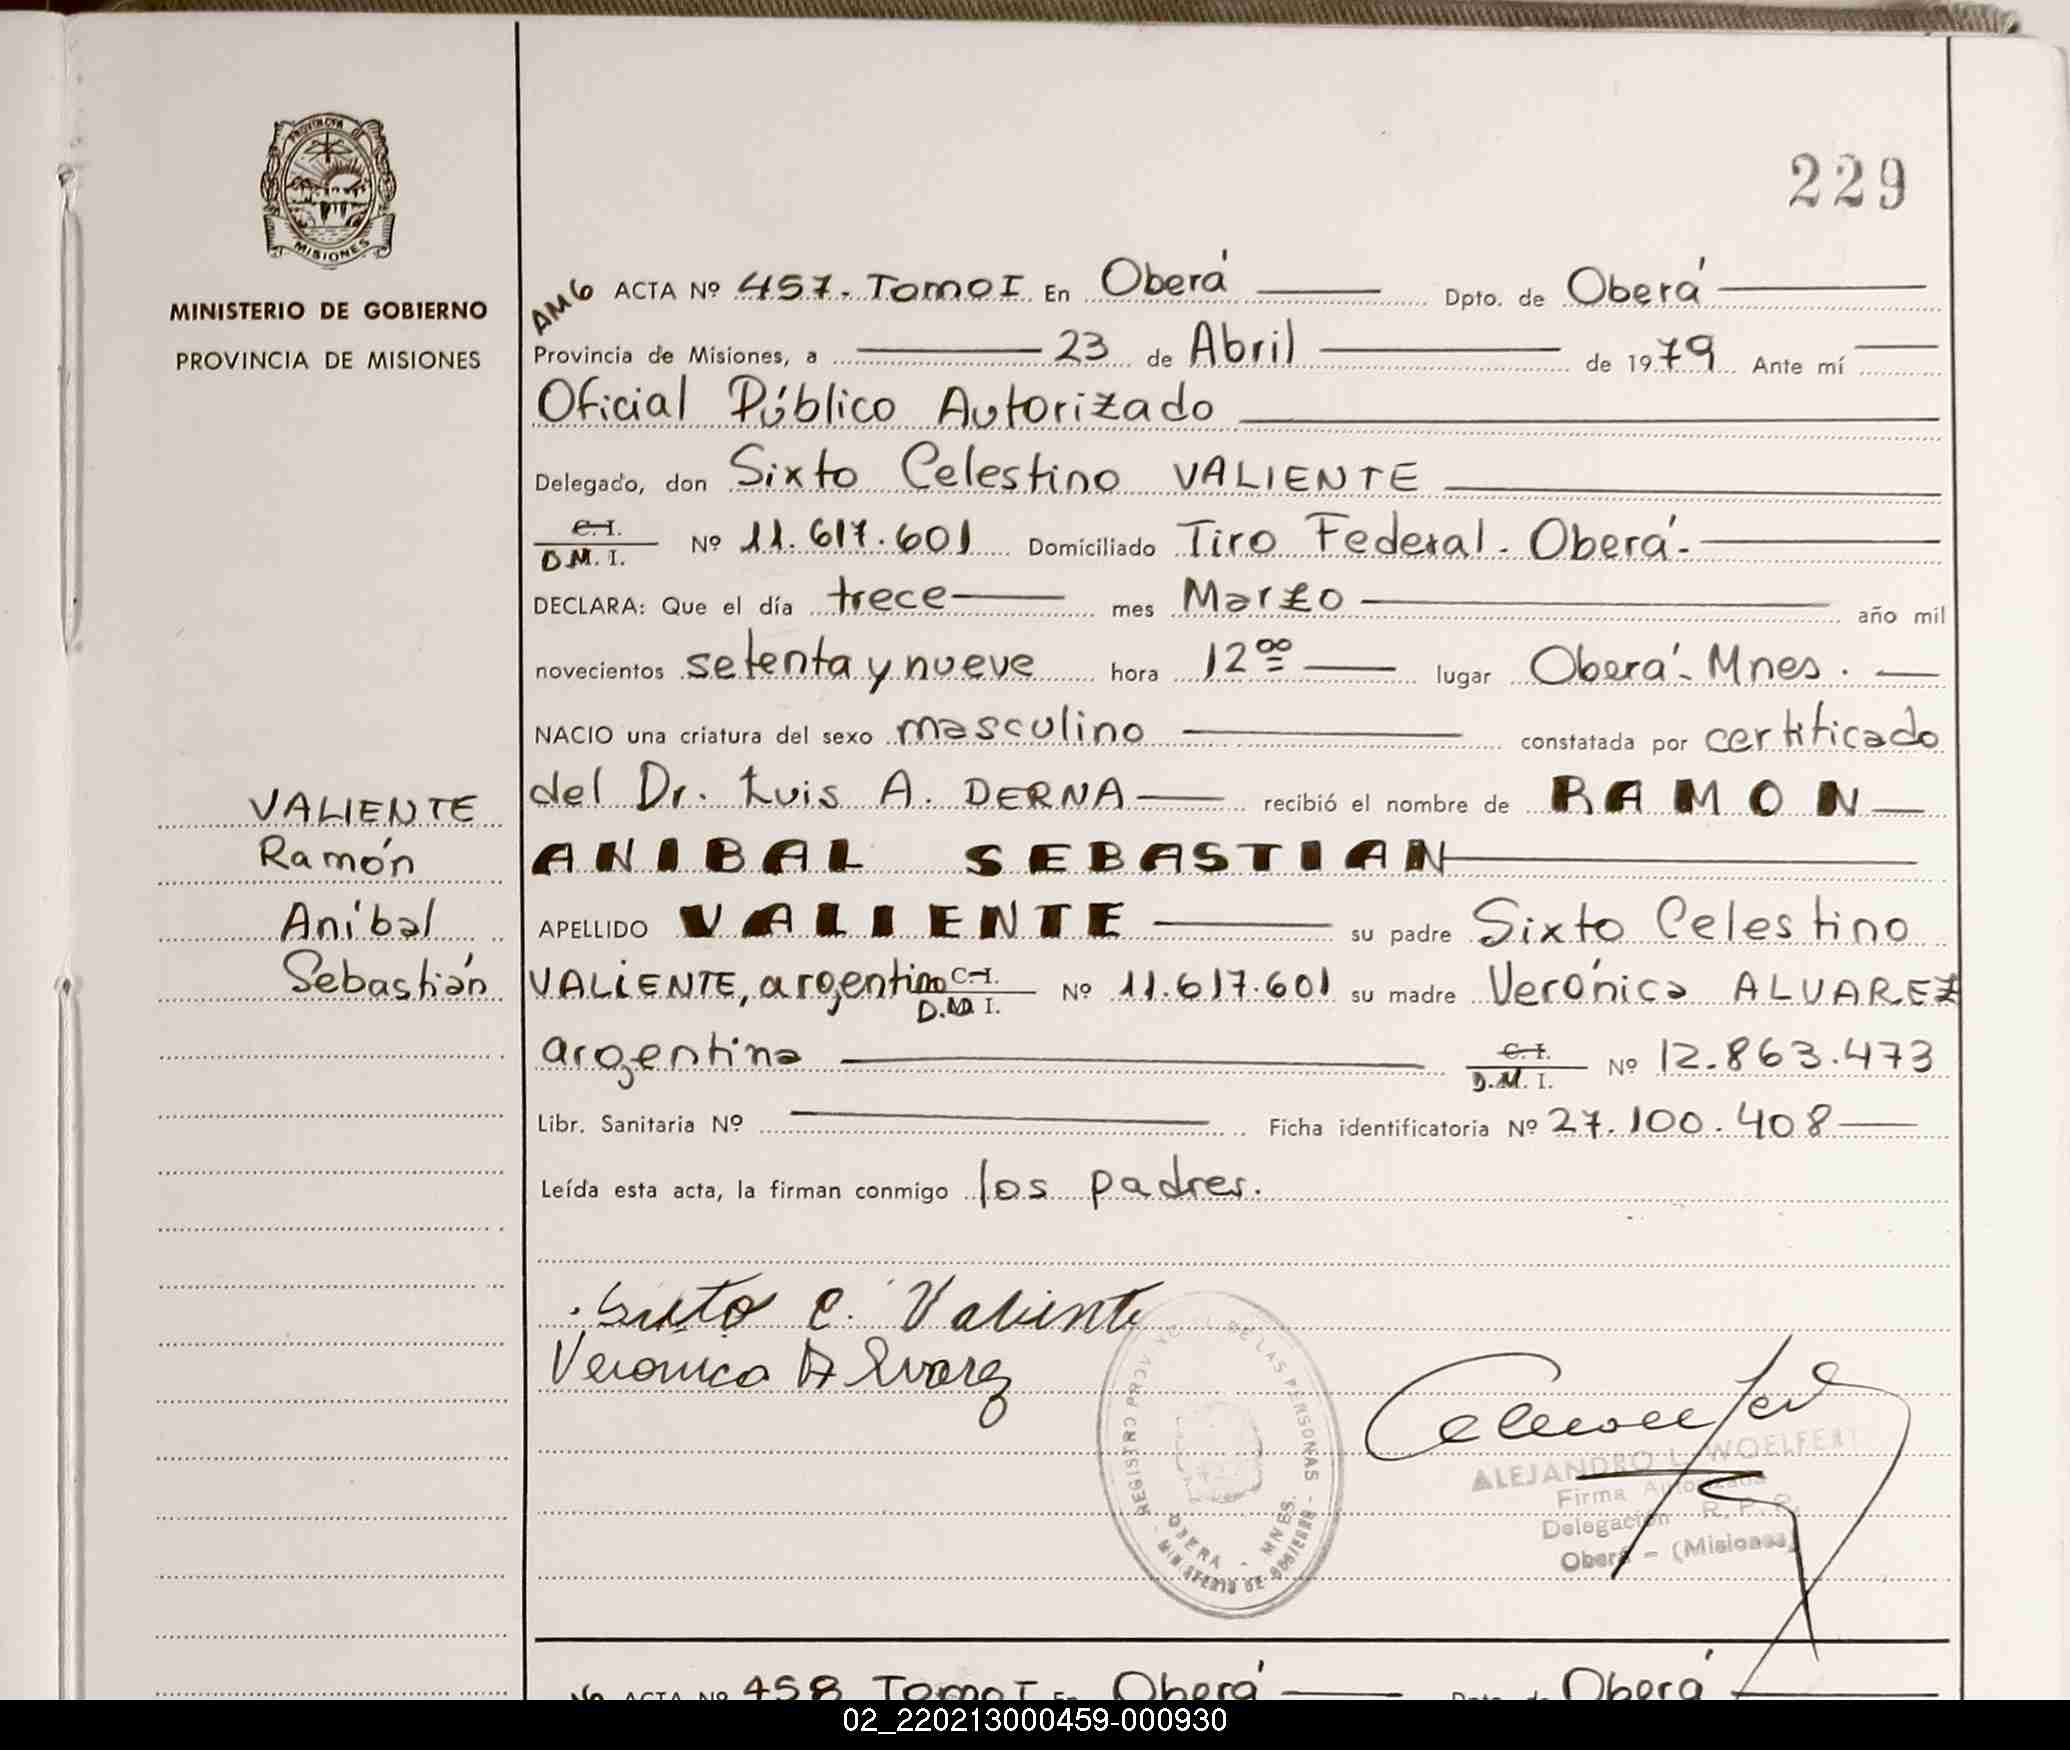 229
PROVINCIA
MISIONES
MINISTERIO DE GOBIERNO
PROVINCIA DE MISIONES
VALIENTE
Ramón
Aníbal
Sebastián
AM6 ACTA Nº 457. Tomo I En Oberá Dpto. de Oberá
Provincia de Misiones, a 23 de Abril de 1979 Ante mí
Oficial Público Autorizado
Delegado, don Sixto Celestino VALIENTE
C.I.
D.M.I. Nº 11.617.601 Domiciliado Tiro Federal. Oberá.
DECLARA: Que el día trece mes Marzo año mil
novecientos setenta y nueve hora 12 00 lugar Oberá. Mnes.
NACIO una criatura del sexo masculino constatada por certificado
del Dr. Luis A. DERNA recibió el nombre de RAMON
ANIBAL SEBASTIAN
APELLIDO VALIENTE su padre Sixto Celestino
VALIENTE, argentino C.I. D.M.I. Nº 11.617.601 su madre Verónica ALVAREZ
argentina C.I. D.M.I. Nº 12.863.473
Libr. Sanitaria Nº Ficha identificatoria Nº 27.100.408
Leída esta acta, la firman conmigo los padres.
Sixto C. Valiente
Veronica Alvarez
REGISTRO PROV DE LAS PERSONAS
OBERA - MNES.
MINISTERIO DE GOBIERNO
ALEJANDRO L. WOELFERT
Firma Autorizada
Delegación R. P. P.
Oberá - (Misiones)
ACTA Nº 458 Tomo I En Oberá Dpto. de Oberá
02_220213000459-000930